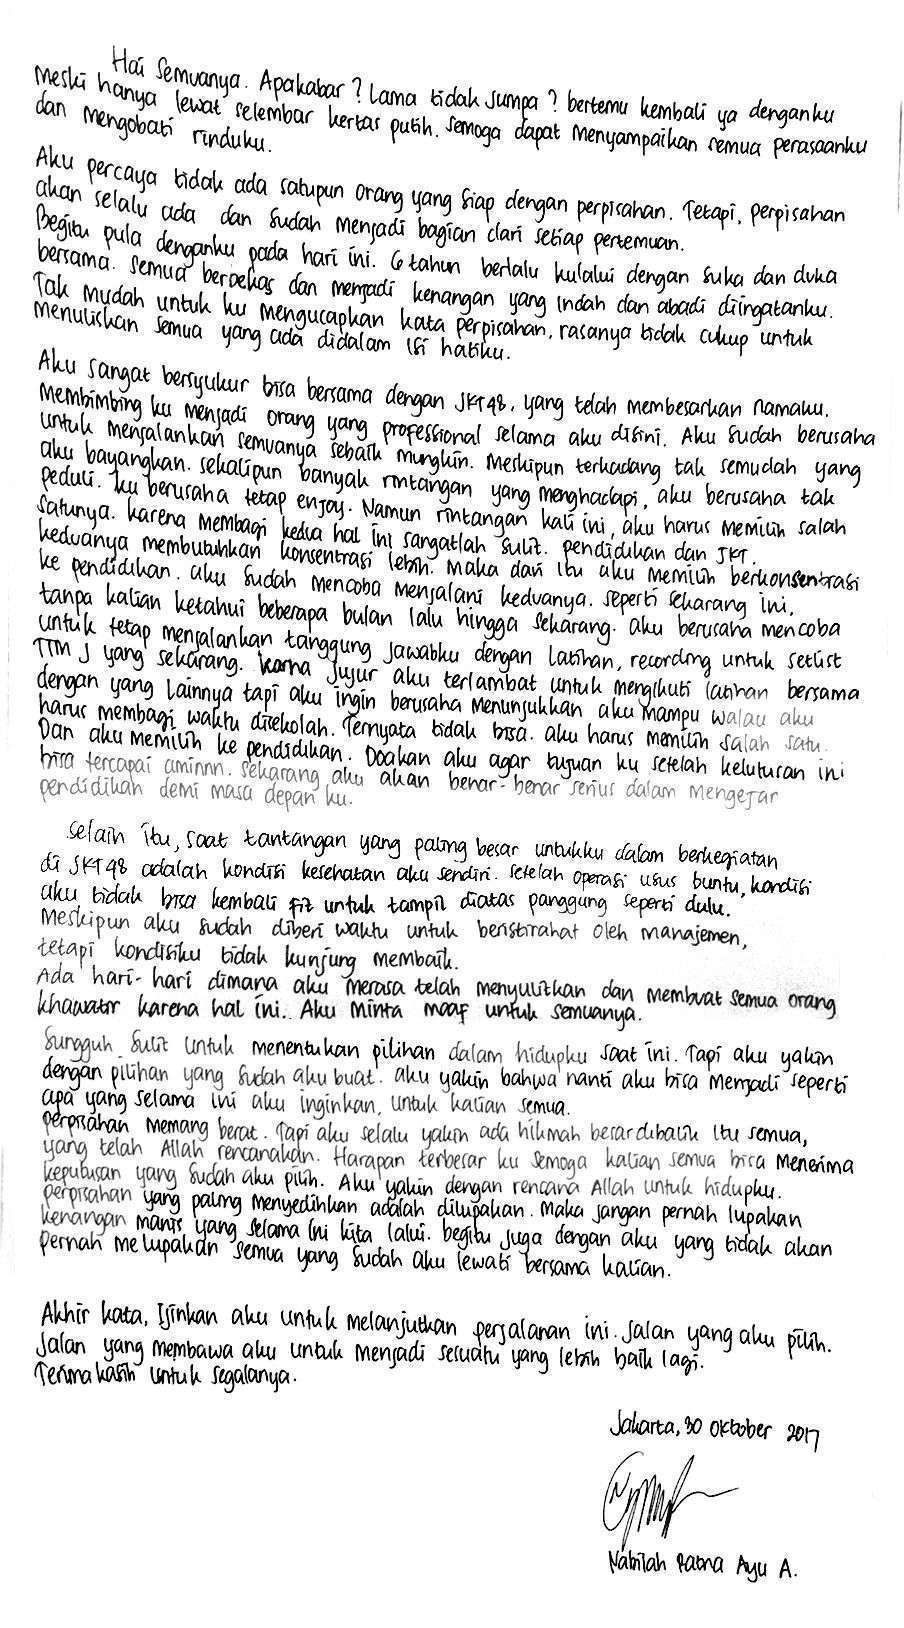 Hai Semuanya. Apakabar? Lama tidak Jumpa? bertemu kembali ya denganku
Meski hanya lewat selembar kertas putih. Semoga dapat Menyampaikan semua perasaanku
dan mengobati rinduku.
Aku percaya tidak ada satupun orang yang siap dengan perpisahan. Tetapi, perpisahan
akan selalu ada dan sudah menjadi bagian dari setiap pertemuan.
Begitu pula denganku pada hari ini. 6 tahun berlalu kulalui dengan suka dan duka
bersama. semua berbekas dan menjadi kenangan yang indah dan abadi diingatanku.
Tak mudah untuk ku mengucapkan kata perpisahan, rasanya tidak cukup untuk
menuliskan semua yang ada didalam isi hatiku.
Aku sangat bersyukur bisa bersama dengan JKT48, yang telah membesarkan namaku.
Membimbing ku menjadi orang yang professional selama aku disini. Aku sudah berusaha
untuk menjalankan semuanya sebaik mungkin. Meskipun terkadang tak semudah yang
aku bayangkan. sekalipun banyak rintangan yang menghadapi, aku berusaha tak
peduli. ku berusaha tetap enjoy. Namun rintangan kali ini, aku harus memilih salah
satunya. karena membagi kedua hal ini sangatlah sulit. pendidikan dan JKT.
keduanya membutuhkan konsentrasi lebih. Maka dari itu aku memilih berkonsentrasi
ke pendidikan. aku sudah mencoba menjalani keduanya. seperti sekarang ini,
tanpa kalian ketahui beberapa bulan lalu hingga sekarang. aku berusaha mencoba
untuk tetap menjalankan tanggung jawabku dengan latihan, recording untuk setlist
TTM J yang sekarang. karna jujur aku terlambat untuk mengikuti latihan bersama
dengan yang lainnya tapi aku ingin berusaha menunjukkan aku mampu walau aku
harus membagi waktu disekolah. Ternyata tidak bisa. aku harus memilih salah satu.
Dan aku memilih ke pendidikan. Doakan aku agar tujuan ku setelah kelulusan ini
bisa tercapai aminnn. sekarang aku akan benar-benar serius dalam mengejar
pendidikan demi masa depan ku.
selain itu, saat tantangan yang paling besar untukku dalam berkegiatan
di JKT48 adalah kondisi kesehatan aku sendiri. setelah operasi usus buntu, kondisi
aku tidak bisa kembali fit untuk tampil diatas panggung seperti dulu.
Meskipun aku sudah diberi waktu untuk beristirahat oleh manajemen,
tetapi kondisiku tidak kunjung membaik.
Ada hari-hari dimana aku merasa telah menyulitkan dan membuat semua orang
khawatir karena hal ini. Aku minta maaf untuk semuanya.
Sungguh sulit untuk menentukan pilihan dalam hidupku saat ini. Tapi aku yakin
dengan pilihan yang sudah aku buat. aku yakin bahwa nanti aku bisa menjadi seperti
apa yang selama ini aku inginkan, untuk kalian semua.
perpisahan memang berat. Tapi aku selalu yakin ada hikmah besar dibalik itu semua,
yang telah Allah rencanakan. Harapan terbesar ku semoga kalian semua bisa menerima
keputusan yang sudah aku pilih. Aku yakin dengan rencana Allah untuk hidupku.
perpisahan yang paling menyedihkan adalah dilupakan. Maka jangan pernah lupakan
kenangan manis yang selama ini kita lalui. begitu juga dengan aku yang tidak akan
pernah melupakan semua yang sudah aku lewati bersama kalian.
Akhir kata, Ijinkan aku untuk melanjutkan perjalanan ini. Jalan yang aku pilih.
Jalan yang membawa aku untuk menjadi sesuatu yang lebih baik lagi.
Terimakasih untuk segalanya.
Jakarta, 30 Oktober 2017
Nabilah Ratna Ayu A.